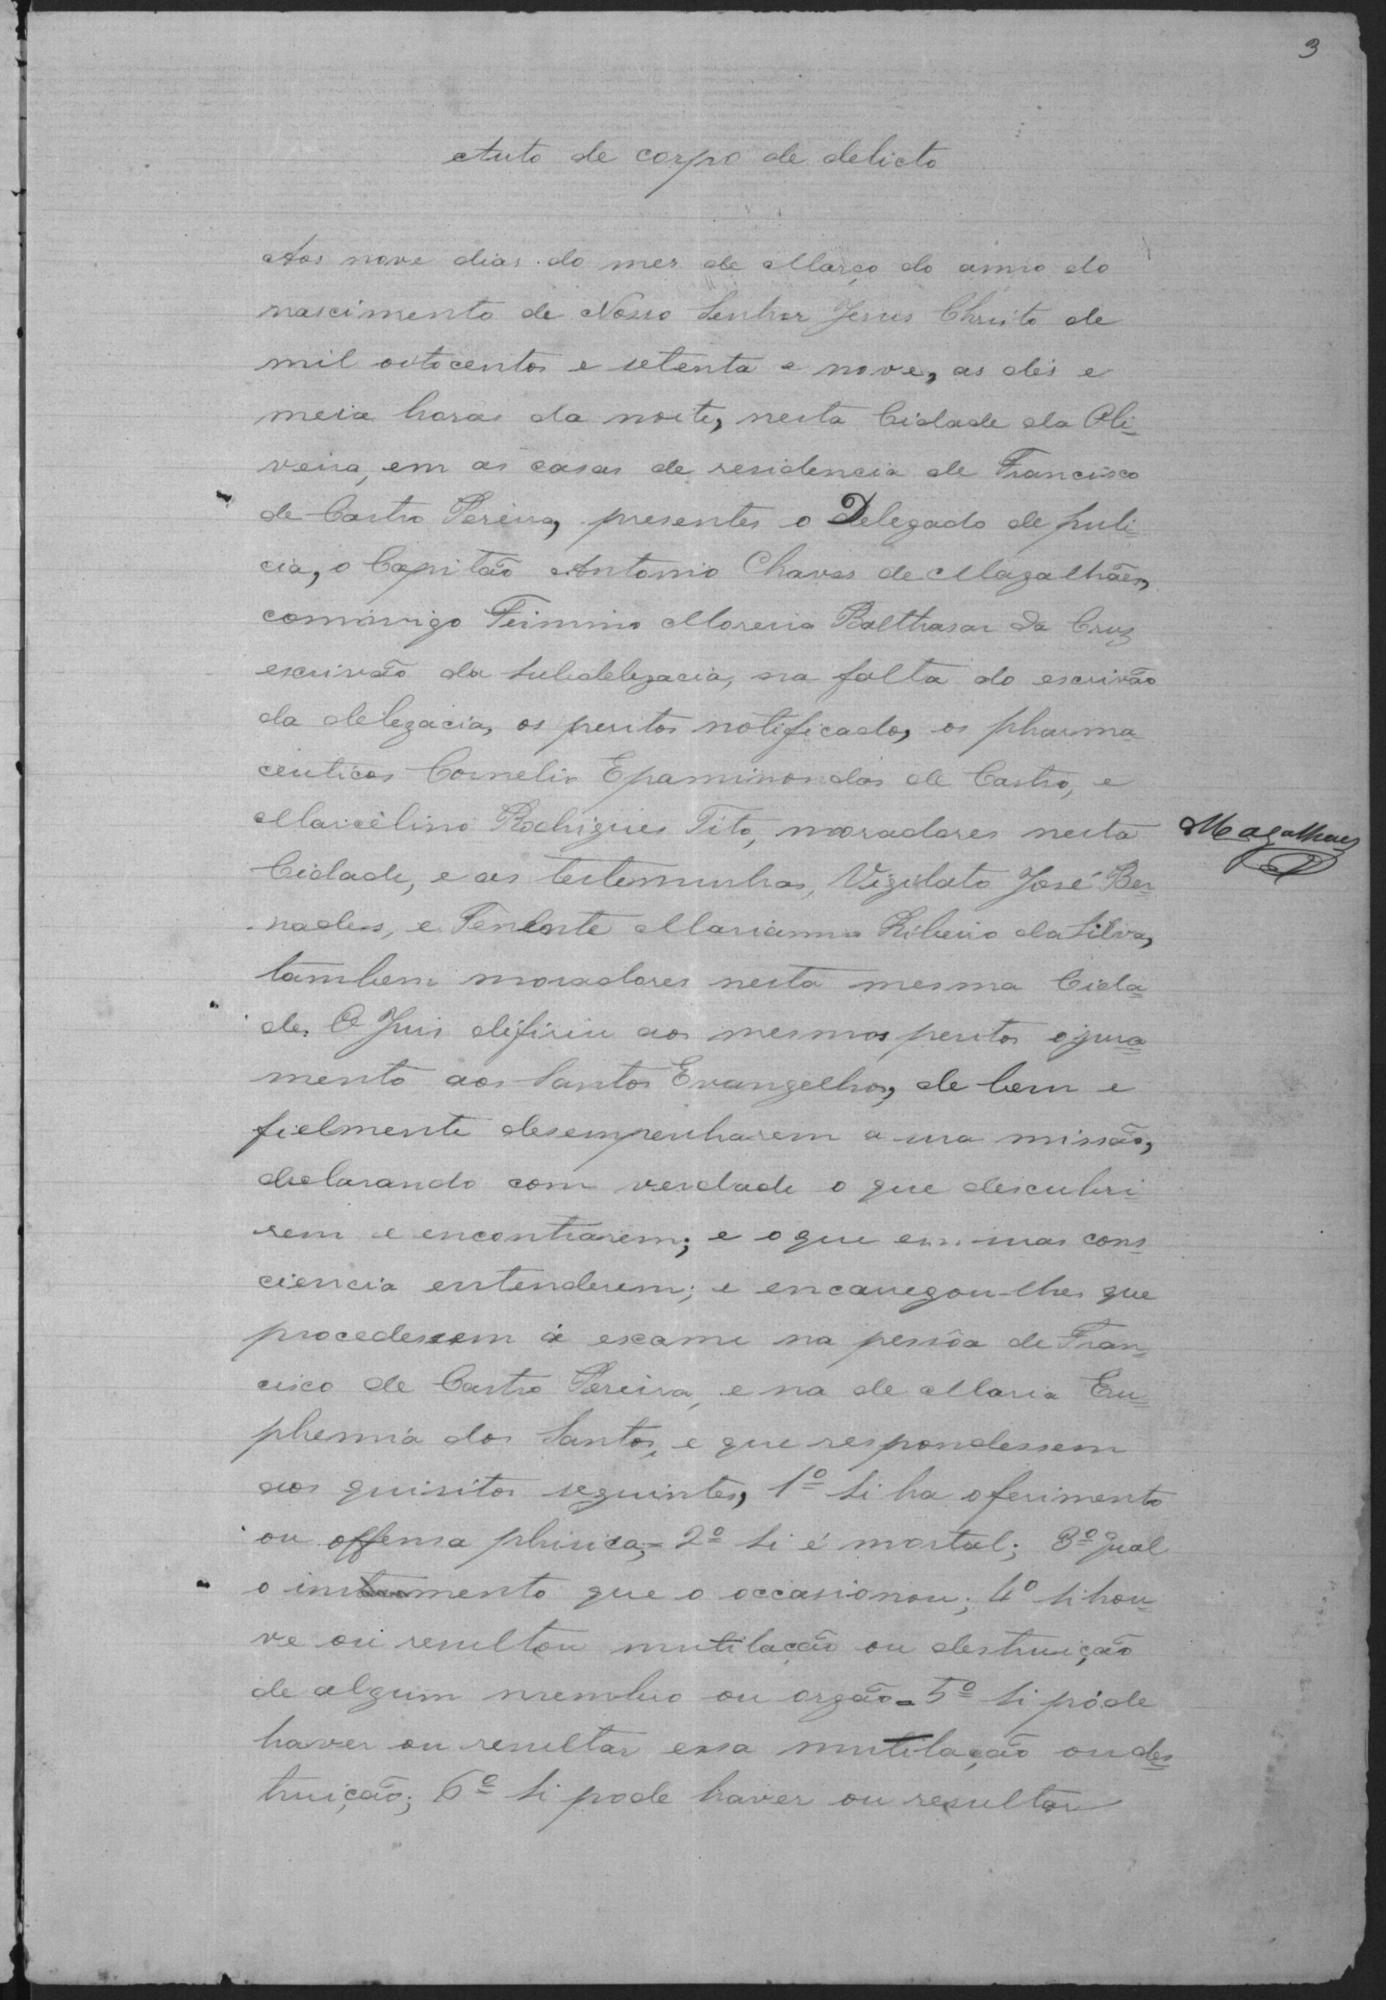 3
Auto de corpo de delicto
Aos nove dias do mes de Março do anno do
nascimento de Nosso Senhor Jesus Christo de
mil oitocentos e setenta e nove, as dés e
meia horas da noite, nesta Cidade da Oli-
veira, em as casas de residencia de Francisco
de Castro Pereira, presentes o Delegado de puli-
cia, o Capitão Antonio Chaves de Magalhães,
commigo Firmino Moreira Balthasar da Cruz
escrivão da Subdelegacia, na falta do escrivão
da delegacia, os peritos notificados, os pharma-
ceuticos Cornelio Epaminondas de Castro, e
Marcelino Rodrigues Tito, moradores nesta
Magalhães
Cidade, e as testemunhas, Vigilato José Ber-
nades, e Tenente Marianno Ribeiro da Silva,
tambem moradores nesta mesma Cida-
de. O Juis difiriu aos mesmos peritos o jura-
mento aos Santos Evangelhos, de bem e
fielmente desempenharem a sua missão,
declarando com verdade o que descubri-
rem e encontrarem; e o que em suas cons-
ciencia entenderem; e encarregou-lhes que
procedessem á exame na pessôa de Fran-
cisco de Castro Pereira, e na de Maria Eu-
phemia dos Santos, e que respondessem
aos quisitos seguintes, 1º Si ha oferimento
ou offensa phisica;= 2º Si é mortal; 3º Qual
o instromento que o occasionou; 4º Si hou-
ve ou resultou mutilação ou destruição
de algum membro ou orgão= 5º Si póde
haver ou resultar essa mutilação ou des-
truição; 6º Si pode haver ou resultar